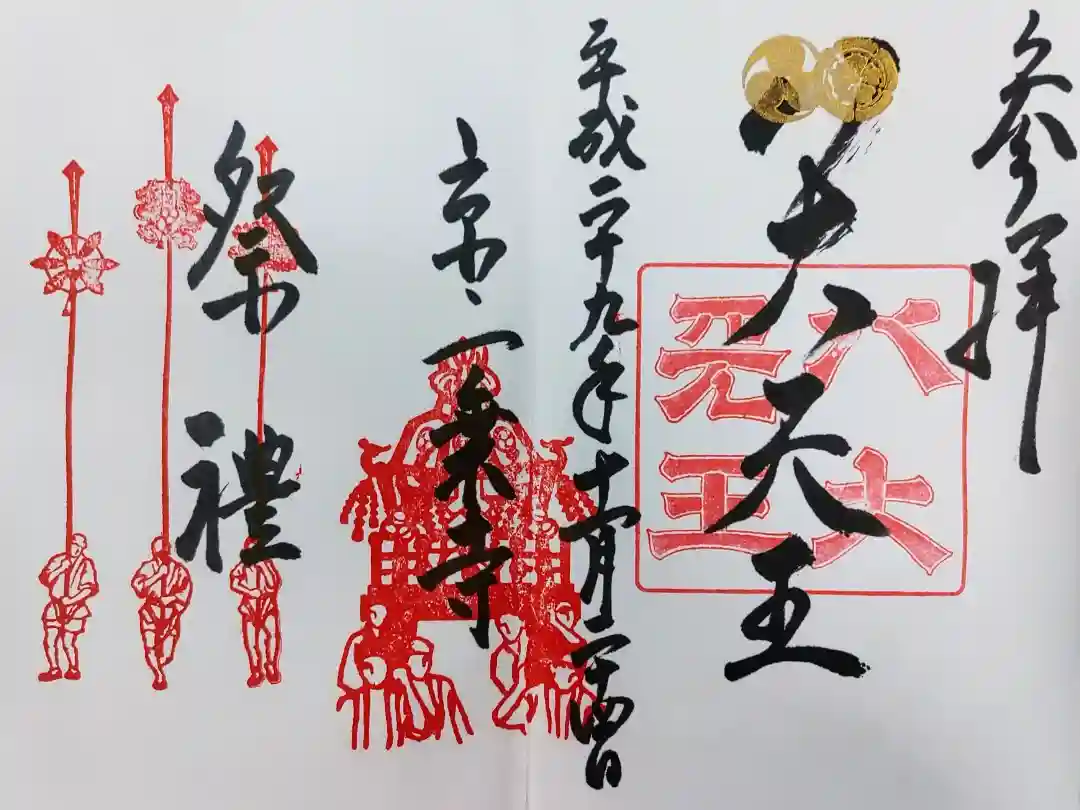 参拝
八大天王
八大
天王
平成二十九年十一月二十四日
京、一乗寺
祭禮